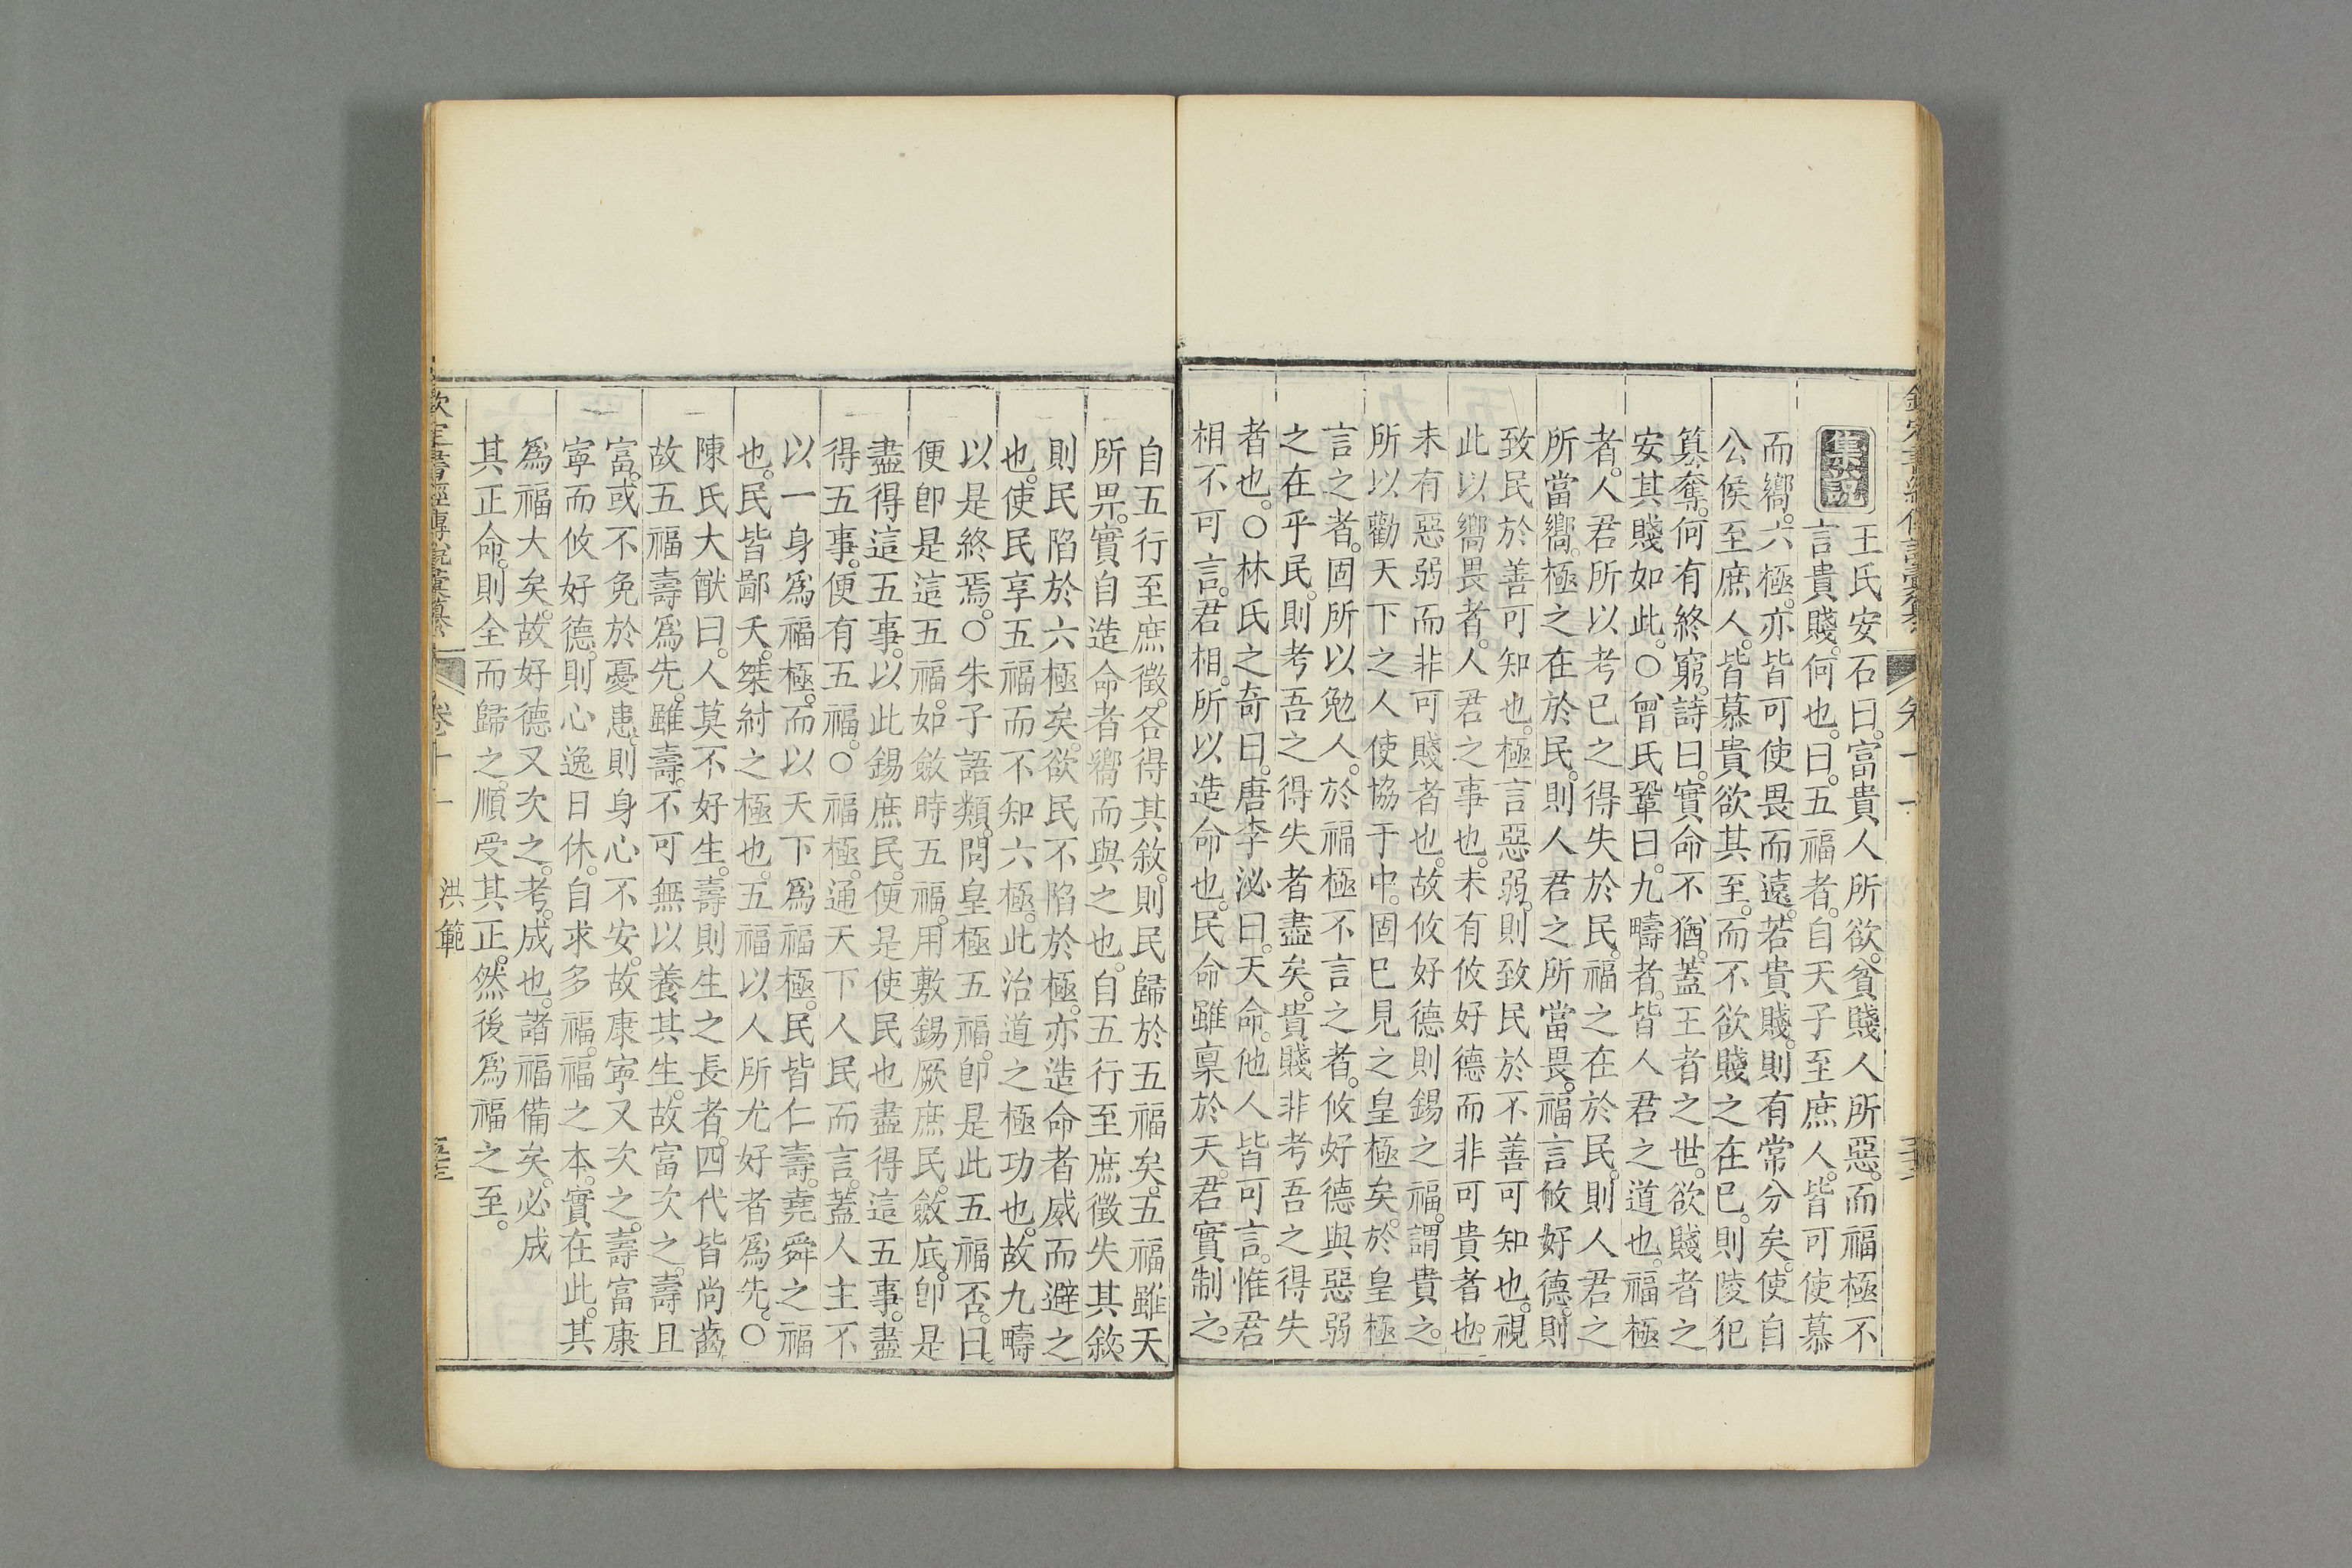 集說
王氏安石曰。富貴人所欲。貧賤人所惡。而福極不
言貴賤。何也。曰。五福者。自天子至庶人。皆可使慕
而嚮。六極。亦皆可使畏而遠。若貴賤。則有常分矣。使自
公侯至庶人。皆慕貴欲其至。而不欲賤之在已。則陵犯
簒奪。何有終窮。詩曰。實命不猶。蓋王者之世。欲賤者之
安其賤如此。○曾氏鞏曰。九疇者。皆人君之道也。福極
者。人君所以考已之得失於民。福之在於民。則人君之
所當嚮。極之在於民。則人君之所當畏。福言攸好德。則
致民於善可知也。極言惡弱。則致民於不善可知也。視
此以嚮畏者。人君之事也。未有攸好德而非可貴者也。
未有惡弱而非可賤者也。故攸好德則錫之福。謂貴之。
所以勸天下之人使協于中。固已見之皇極矣。於皇極
言之者。固所以勉人。於福極不言之者。攸好德與惡弱
之在乎民。則考吾之得失者盡矣。貴賤非考吾之得失
者也。○林氏之奇曰。唐李泌曰。天命。他人皆可言。惟君
相不可言。君相。所以造命也。民命雖稟於天。君實制之。
自五行至庶徵。各得其敘。則民歸於五福矣。五福雖天
所畀。實自造命者嚮而與之也。自五行至庶徵失其敘。
則民陷於六極矣。欲民不陷於極。亦造命者威而避之
也。使民享五福而不知六極。此治道之極功也。故九疇
以是終焉。○朱子語類。問皇極五福。卽是此五福否。曰。
便卽是這五福。如斂時五福。用敷錫厥庶民。斂底。卽是
盡得這五事。以此錫庶民。便是使民也盡得這五事。盡
得五事。便有五福。○福極。通天下人民而言。蓋人主不
以一身爲福極。而以天下爲福極。民皆仁壽。堯舜之福
也。民皆鄙夭。桀紂之極也。五福以人所尤好者爲先。○
陳氏大猷曰。人莫不好生。壽則生之長者。四代皆尚齒。
故五福壽爲先。雖壽。不可無以養其生。故富次之。壽且
富。或不免於憂患。則身心不安。故康寧又次之。壽富康
寧而攸好德。則心逸日休。自求多福。福之本。實在此。其
爲福大矣。故好德又次之。考。成也。諸福備矣。必成
其正命。則全而歸之。順受其正。然後爲福之至。
欽定書經傳說彙纂
卷十一
洪範